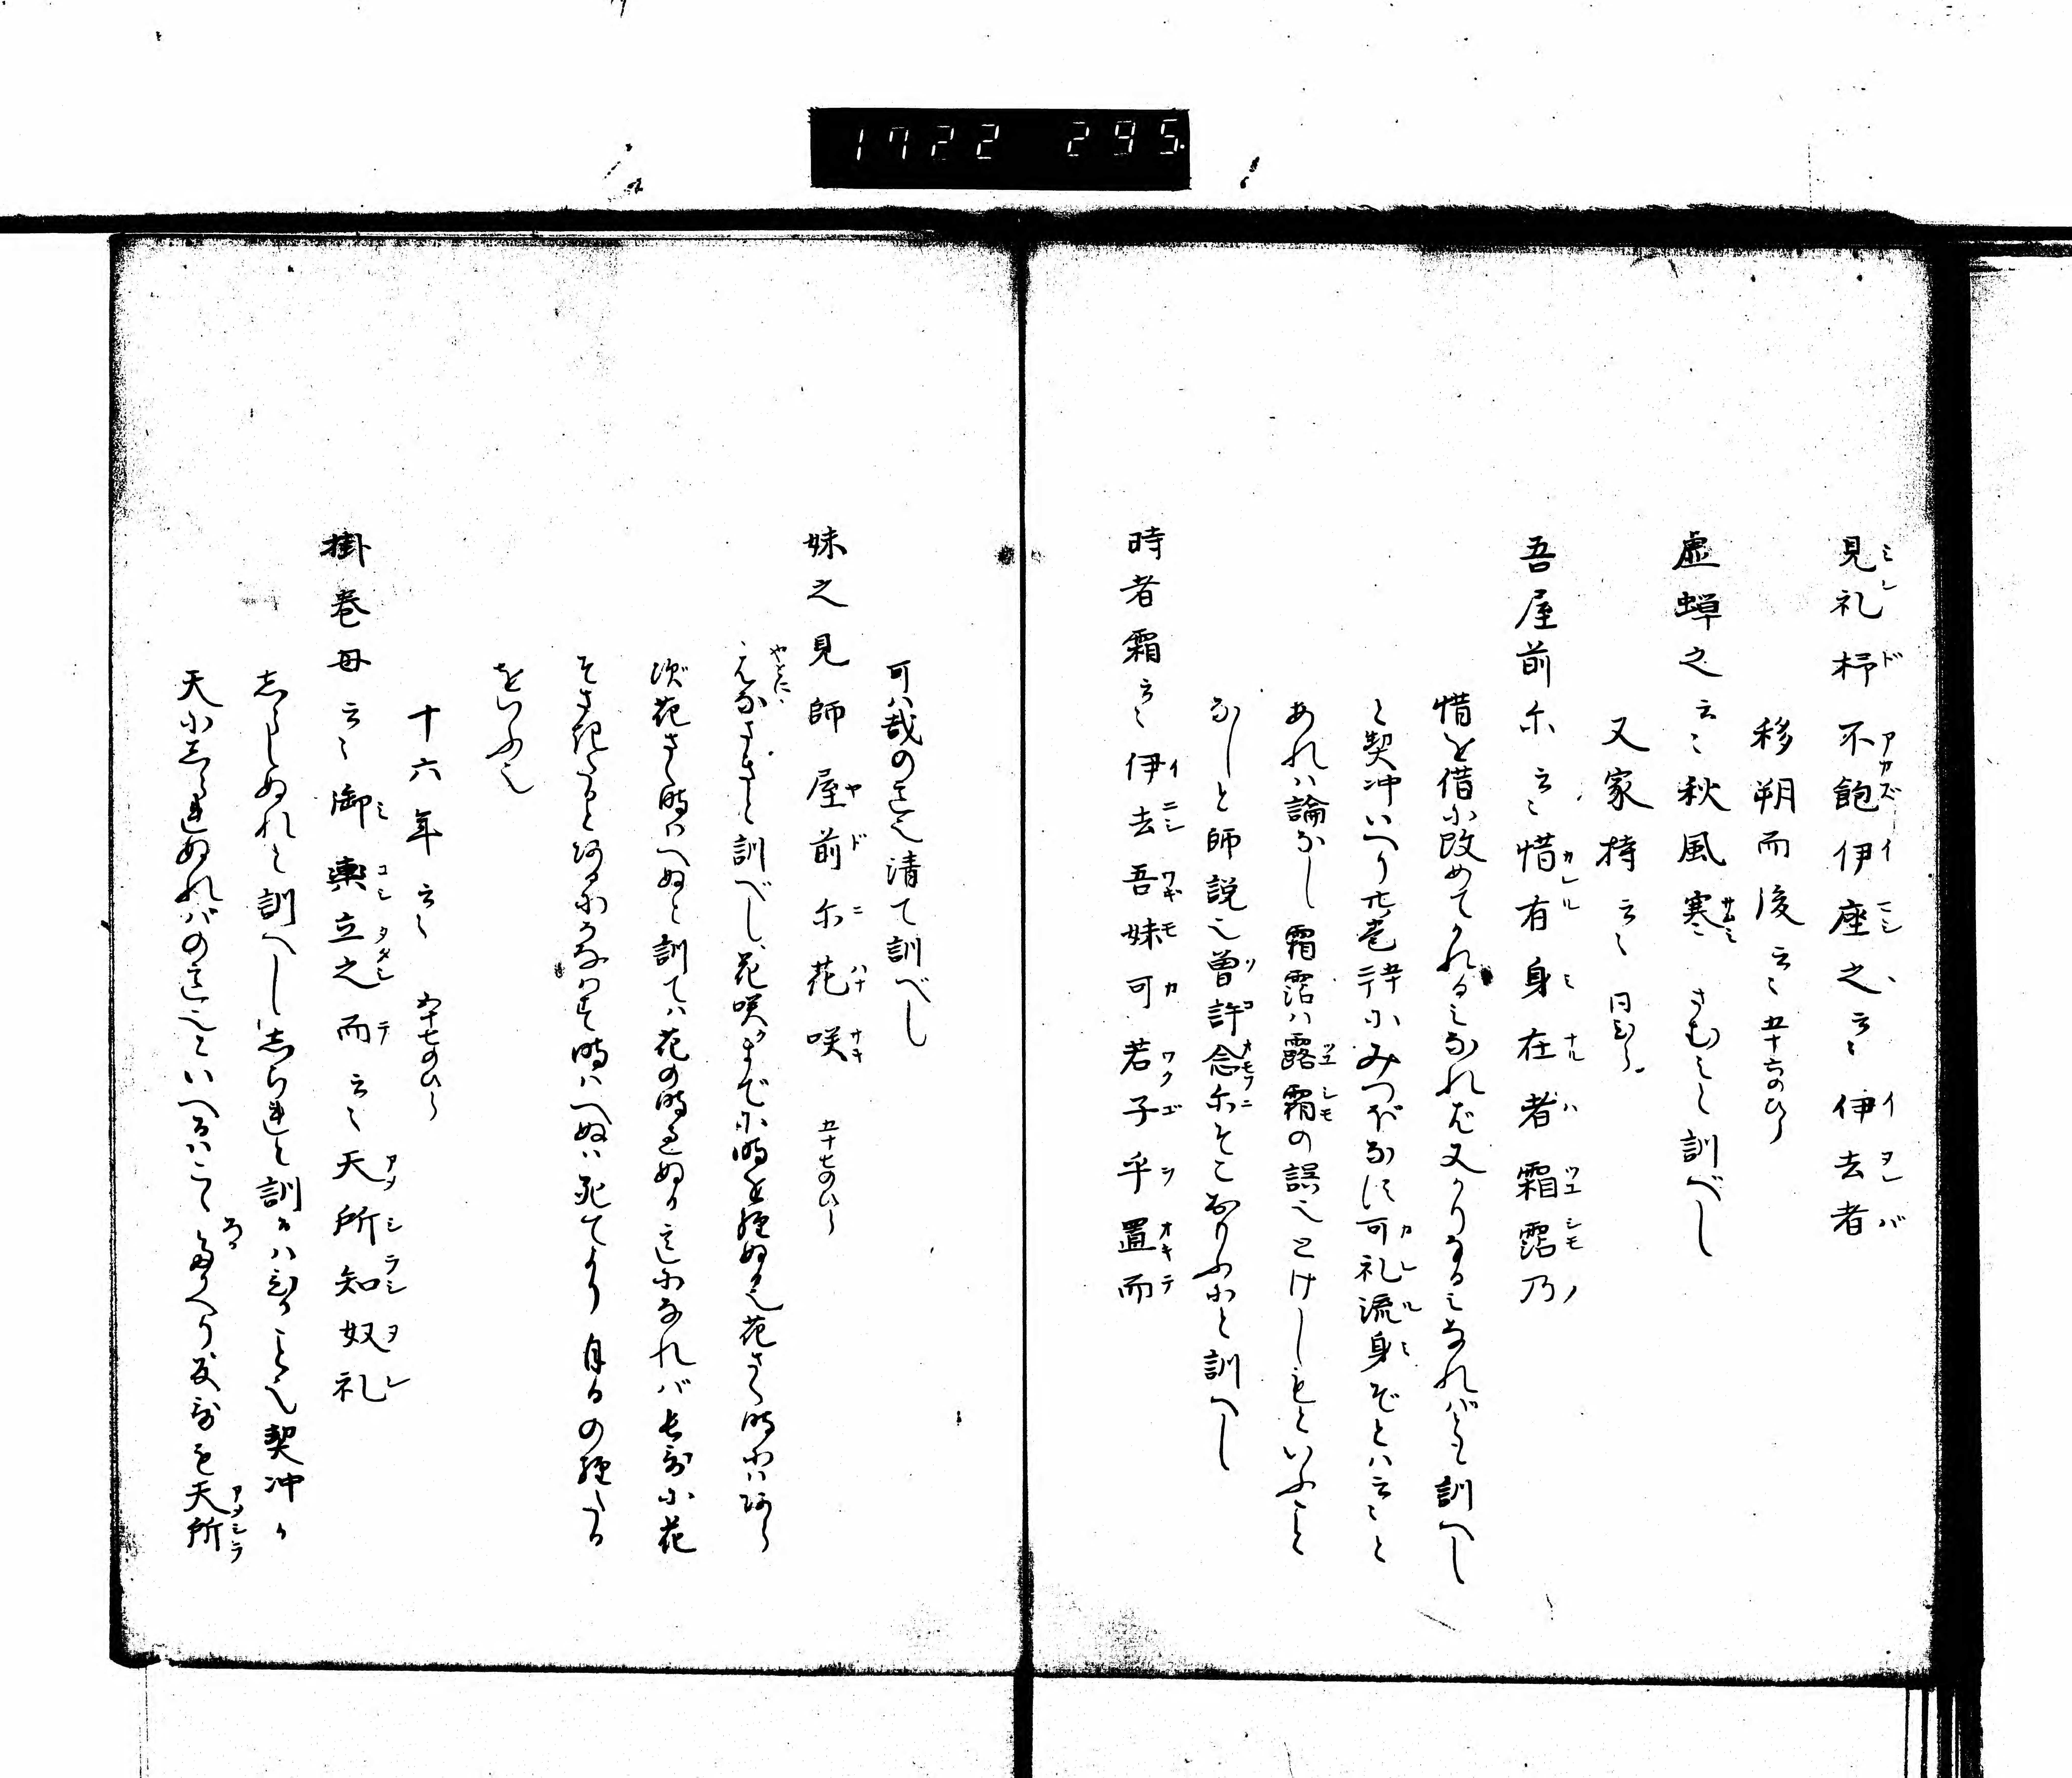 1722 295
見礼杼不飽伊座之云々伊去者
移朔而後云々五十六のひら
虚蝉之云々秋風寒 さむミと訓べし
又家持云々 同ひら
吾屋前尓云々惜有身在者霜露乃
惜を借小改めてかれるミなれば又かりなるミなればとも訓へし
と契冲いへり廿巻 小みつぼなす可礼流身ぞとハ云々と
あれハ論なし霜露ハ露霜の誤也とけしもといふこと
なしと師説也曽許念尓そこおもふにと訓へし
時者霜云々伊去吾妹可若子乎置而
可ハ哉の意也清て訓べし
妹之見師屋前尓花咲 五十七のひら
訓べし花咲まで小時を経ぬる也花さく時小ハあら
ず花さく時ハへぬと訓てハ花の時過ぬる意になれバ長歌小花
そさきたるとあるにかなはず時ハへぬハ死てより月日の経たる
をいふ也
十六年云々 五十七のひら
掛巻母云々御輿立之而云々天所知奴礼
志らしぬれと訓へし志られと訓るハひがこと也契冲が
天小しられぬれバの意也といへるハこゝろたかへり反歌を天所